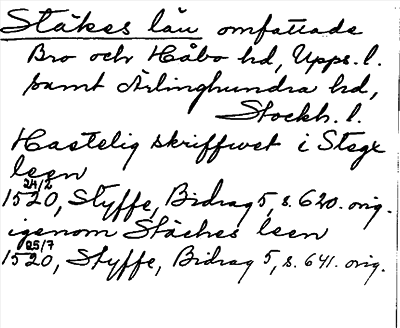 Stäkes län omfattade
Bro och Håbo hd, Upps. l.
samt Ärlinghundra hd,
Stockh. l.
Hastelig skriffwet i Stegx
leen
24/2
1520, Styffe, Bidrag 5, s. 620. orig.
igenom Stäckes leen
25/7
1520, Styffe, Bidrag 5, s. 641. orig.